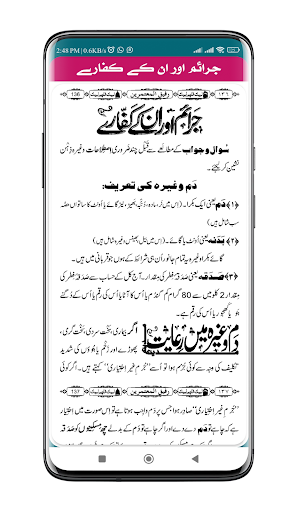 2:48 PM | 0.6KB/s
جرائم اور ان کے کفارے
136 رفیق المعتمرین ١٣٦
جرائم اور ان کے کفارے
سُوال و جواب کے مطالعے سے قبل چند ضَروری اصطلاحات وغیرہ ذِہن
نشین کر لیجئے۔
دَم وغیرہ کی تعریف:
﴿١﴾ دَم یعنی ایک بکرا۔ (اس میں نر، مادہ، دُنبہ، بھیڑ، نیز گائے یا اُونٹ کا ساتواں حصّہ
سب شامل ہیں)
﴿٢﴾ بَدَنہ یعنی اُونٹ یا گائے۔ (اس میں بیل، بھینس وغیرہ شامل ہیں)
گائے بکرا وغیرہ یہ تمام جانور اُن ہی شرائط کے ہوں جو قربانی میں ہیں۔
﴿٣﴾ صَدَقہ یعنی صَدَقۂ فِطر کی مقدار۔ آج کل کے حساب سے صَدَقۂ فِطر کی
مقدار 2 کلو میں سے 80 گرام کم گندُم یا اُس کا آٹا یا اُس کی رقم یا اُس کے
دُگنے جَو یا کھجور یا اُس کی رقم ہے۔
دَم وغیرہ میں رِعایت
اگر بیماری، سخت سردی، سخت گرمی،
پھوڑے اور زخم یا جوؤں کی شدید
تکلیف کی وجہ سے کوئی جُرم ہوا تو اُسے "جُرمِ غیر اختیاری" کہتے ہیں۔ اگر کوئی
137 رفیق المعتمرین ١٣٧
"جُرمِ غیر اختیاری" صادِر ہوا جس پر دَم واجب ہوتا ہے تو اس صورت میں اختیار
ہے کہ چاہے تو دَم دے دے اور اگر چاہے تو دَم کے بدلے چھ مسکینوں کو صَدَقہ